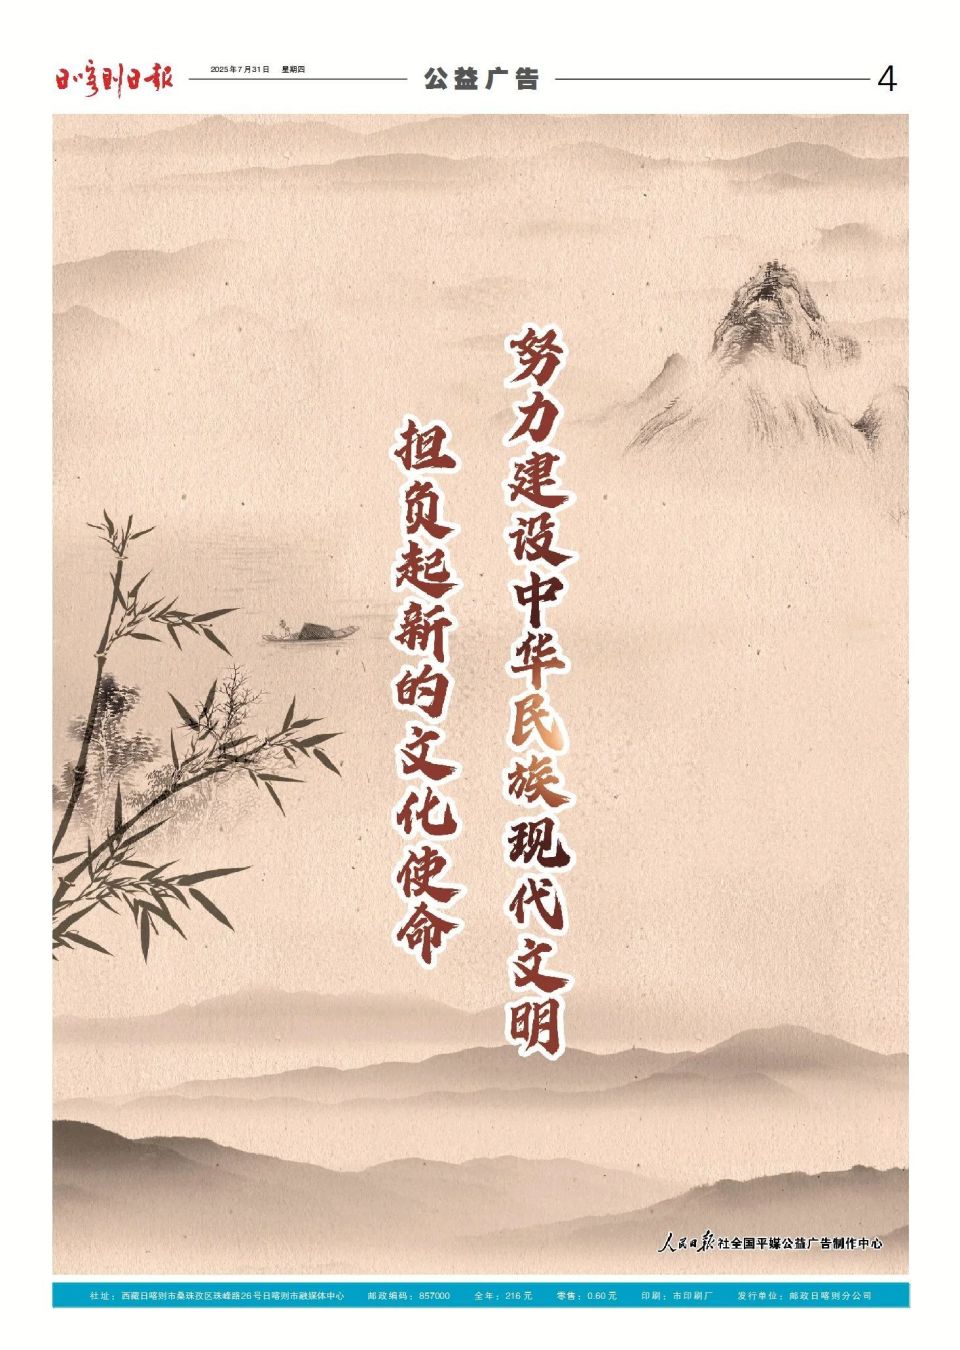 日喀则日报
2025年7月31日 星期四
公益广告
4
努力建设中华民族现代文明
担负起新的文化使命
人民日报社全国平媒公益广告制作中心
社址：西藏日喀则市桑珠孜区珠峰路26号日喀则市融媒体中心 邮政编码：857000 全年：216元 零售：0.60元 印刷：市印刷厂 发行单位：邮政日喀则分公司